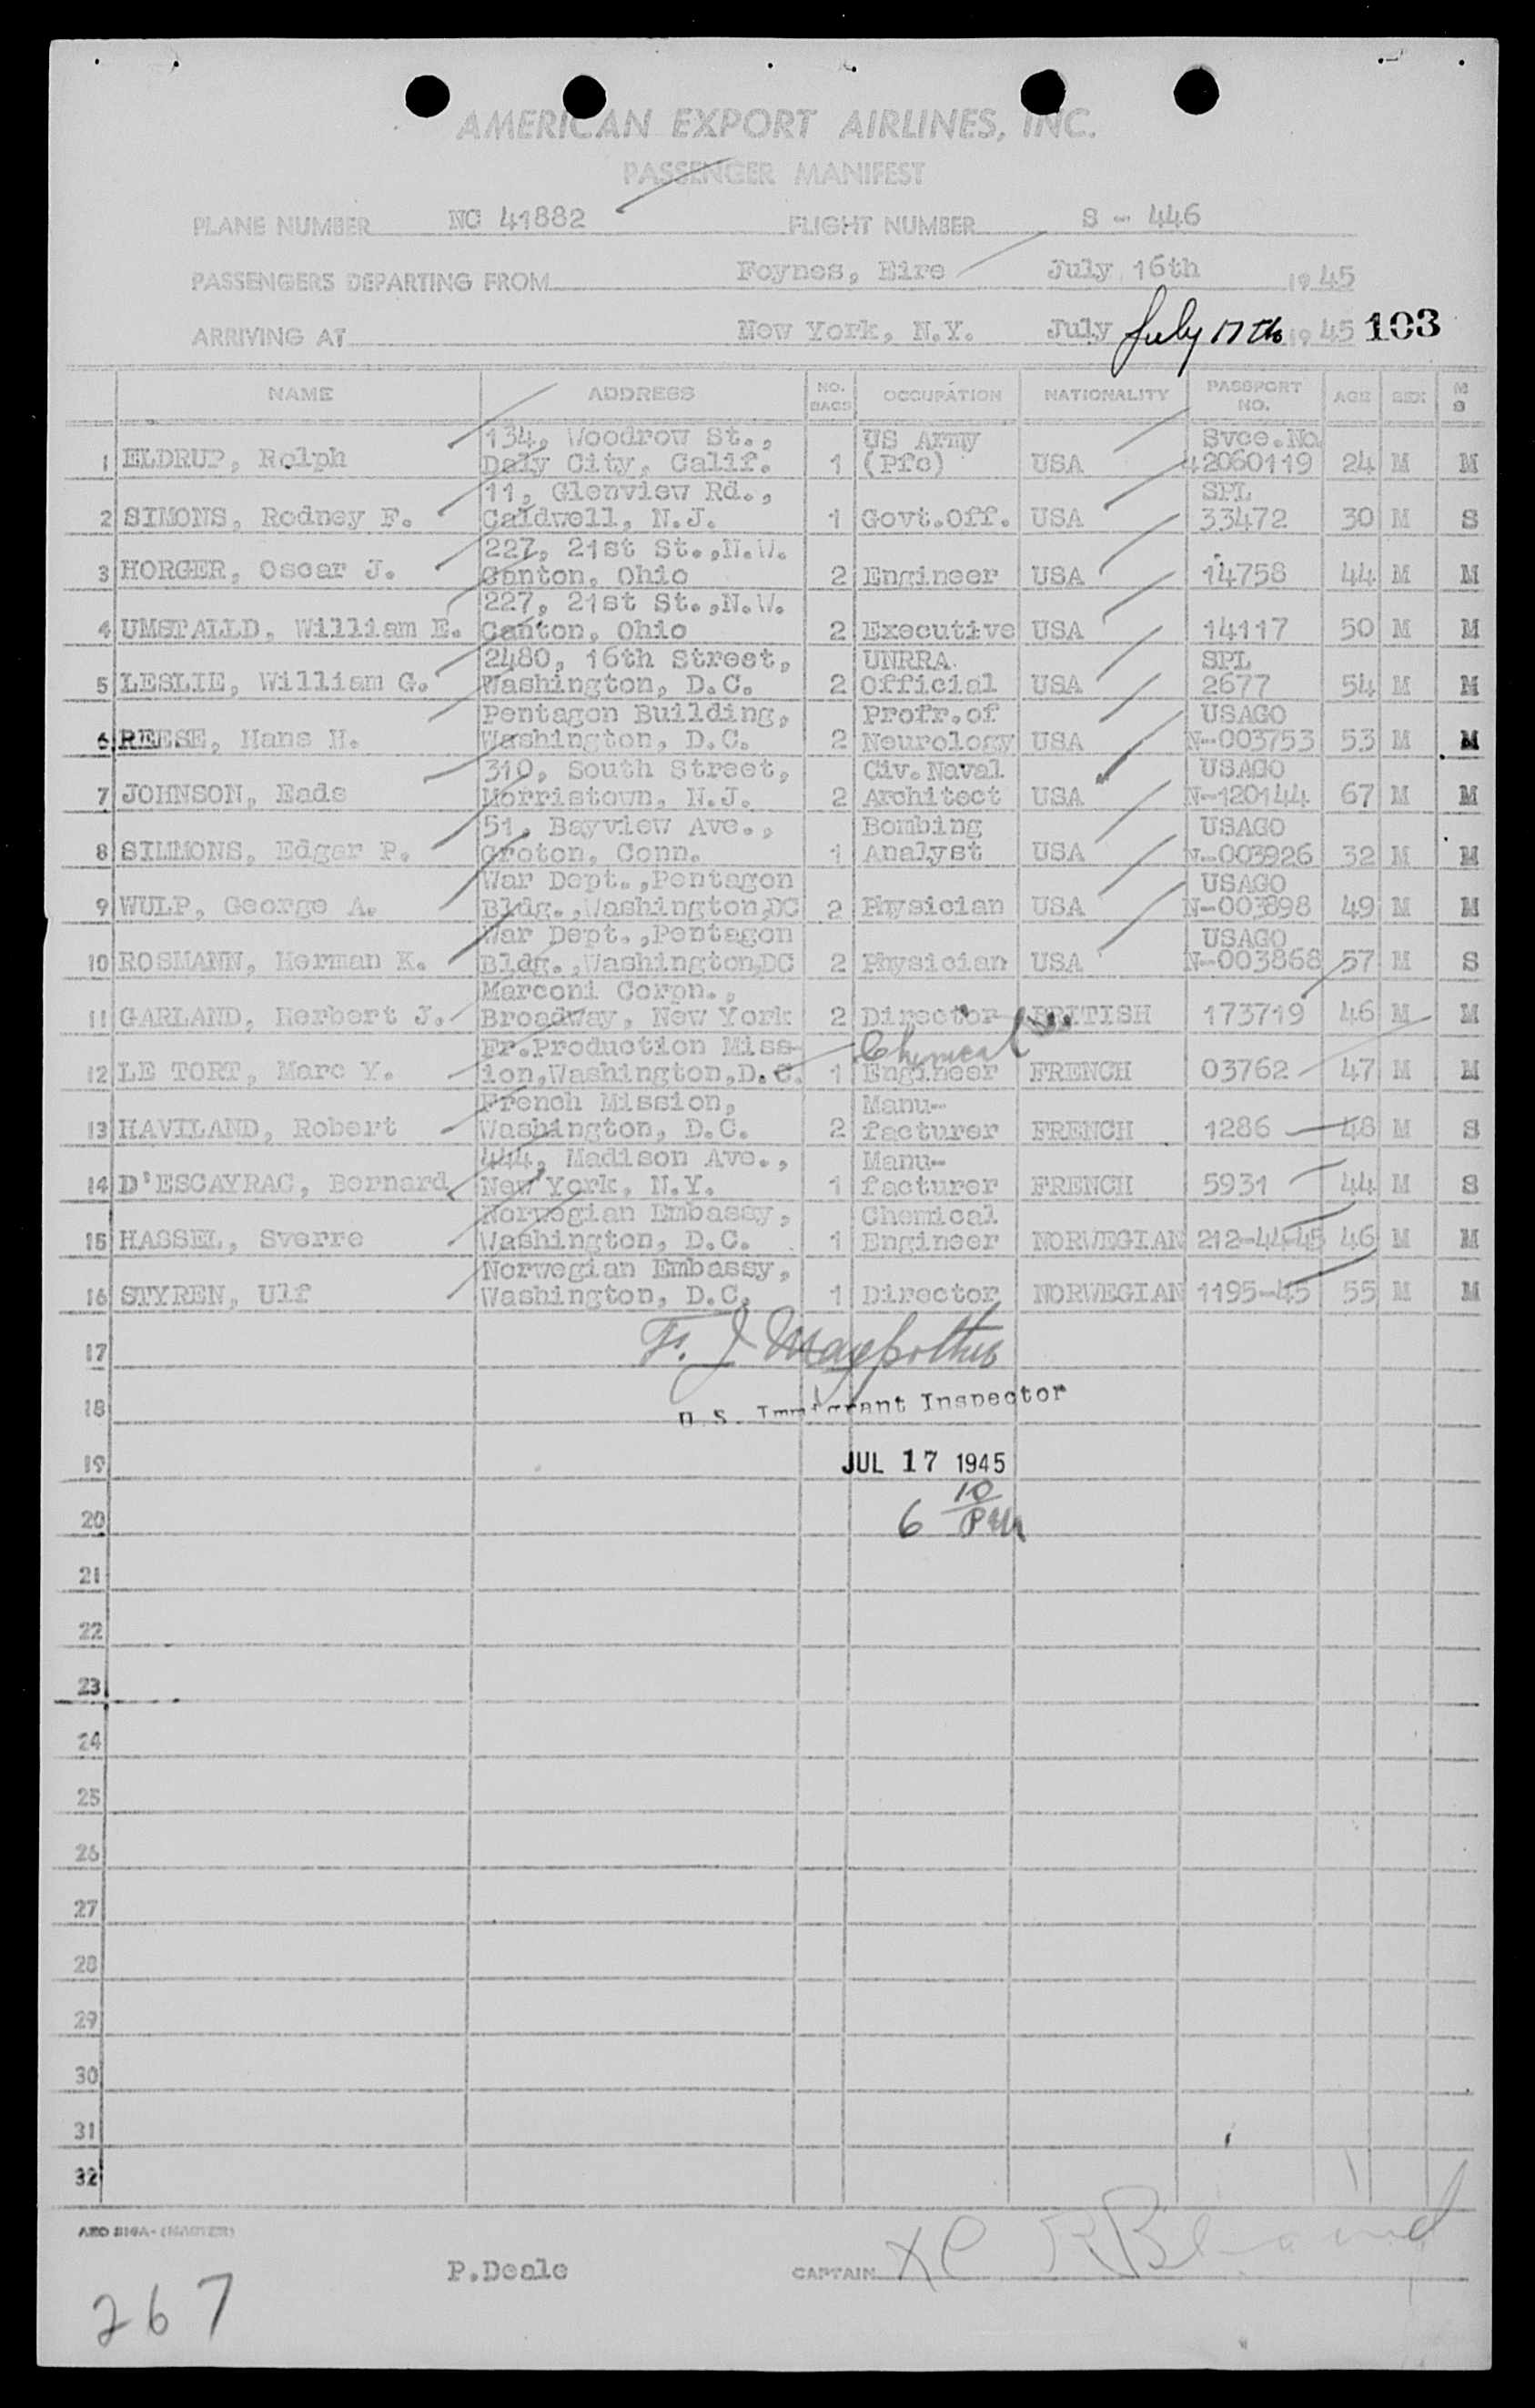 AMERICAN EXPORT AIRLINES, INC.
PASSENGER MANIFEST
PLANE NUMBER NC 41882 FLIGHT NUMBER S - 446
PASSENGERS DEPARTING FROM Foynes, Eire July 16th 1945
ARRIVING AT New York, N.Y. July July 17th 1945 103
NAME ADDRESS NO. BAGS OCCUPATION NATIONALITY PASSPORT NO. AGE SEX M S
134, Woodrow St., US Army Svce.No.
1 ELDRUP, Rolph Daly City, Calif. 1 (Pfc) USA 42060119 24 M M
11, Glenview Rd., SPL
2 SIMONS, Rodney F. Caldwell, N.J. 1 Govt.Off. USA 33472 30 M S
227, 21st St.,N.W.
3 HORGER, Oscar J. Canton, Ohio 2 Engineer USA 14758 44 M M
227, 21st St.,N.W.
4 UMSTALLD, William E. Canton, Ohio 2 Executive USA 14117 50 M M
2480, 16th Street, UNRRA SPL
5 LESLIE, William G. Washington, D.C. 2 Official USA 2677 54 M M
Pentagon Building, Profr.of USAGO
6 REESE, Hans H. Washington, D.C. 2 Neurology USA N-003753 53 M M
310, South Street, Civ.Naval USAGO
7 JOHNSON, Eads Morristown, N.J. 2 Architect USA N-120144 67 M M
51, Bayview Ave., Bombing USAGO
8 SIMMONS, Edgar P. Groton, Conn. 1 Analyst USA N-003926 32 M M
War Dept.,Pentagon USAGO
9 WULP, George A. Bldg.,Washington,DC 2 Physician USA N-003898 49 M M
War Dept.,Pentagon USAGO
10 ROSMANN, Herman K. Bldg.,Washington,DC 2 Physician USA N-003868 57 M S
Marconi Corpn.,
11 GARLAND, Herbert J. Broadway, New York 2 Director BRITISH 173719 46 M M
Fr.Production Miss- Chemical
12 LE TORT, Marc Y. ion,Washington,D.C. 1 Engineer FRENCH 03762 47 M M
French Mission, Manu-
13 HAVILAND, Robert Washington, D.C. 2 facturer FRENCH 1286 48 M S
444, Madison Ave., Manu-
14 D'ESCAYRAC, Bernard New York, N.Y. 1 facturer FRENCH 5931 44 M S
Norwegian Embassy, Chemical
15 HASSEL, Sverre Washington, D.C. 1 Engineer NORWEGIAN 212-44-45 46 M M
Norwegian Embassy,
16 STYREN, Ulf Washington, D.C. 1 Director NORWEGIAN 1195-45 55 M M
17 F. J.
18 U.S. Immigrant Inspector
19 JUL 17 1945
20 6 10 PM
21
22
23
24
25
26
27
28
29
30
31
32
P.Deale CAPTAIN
267